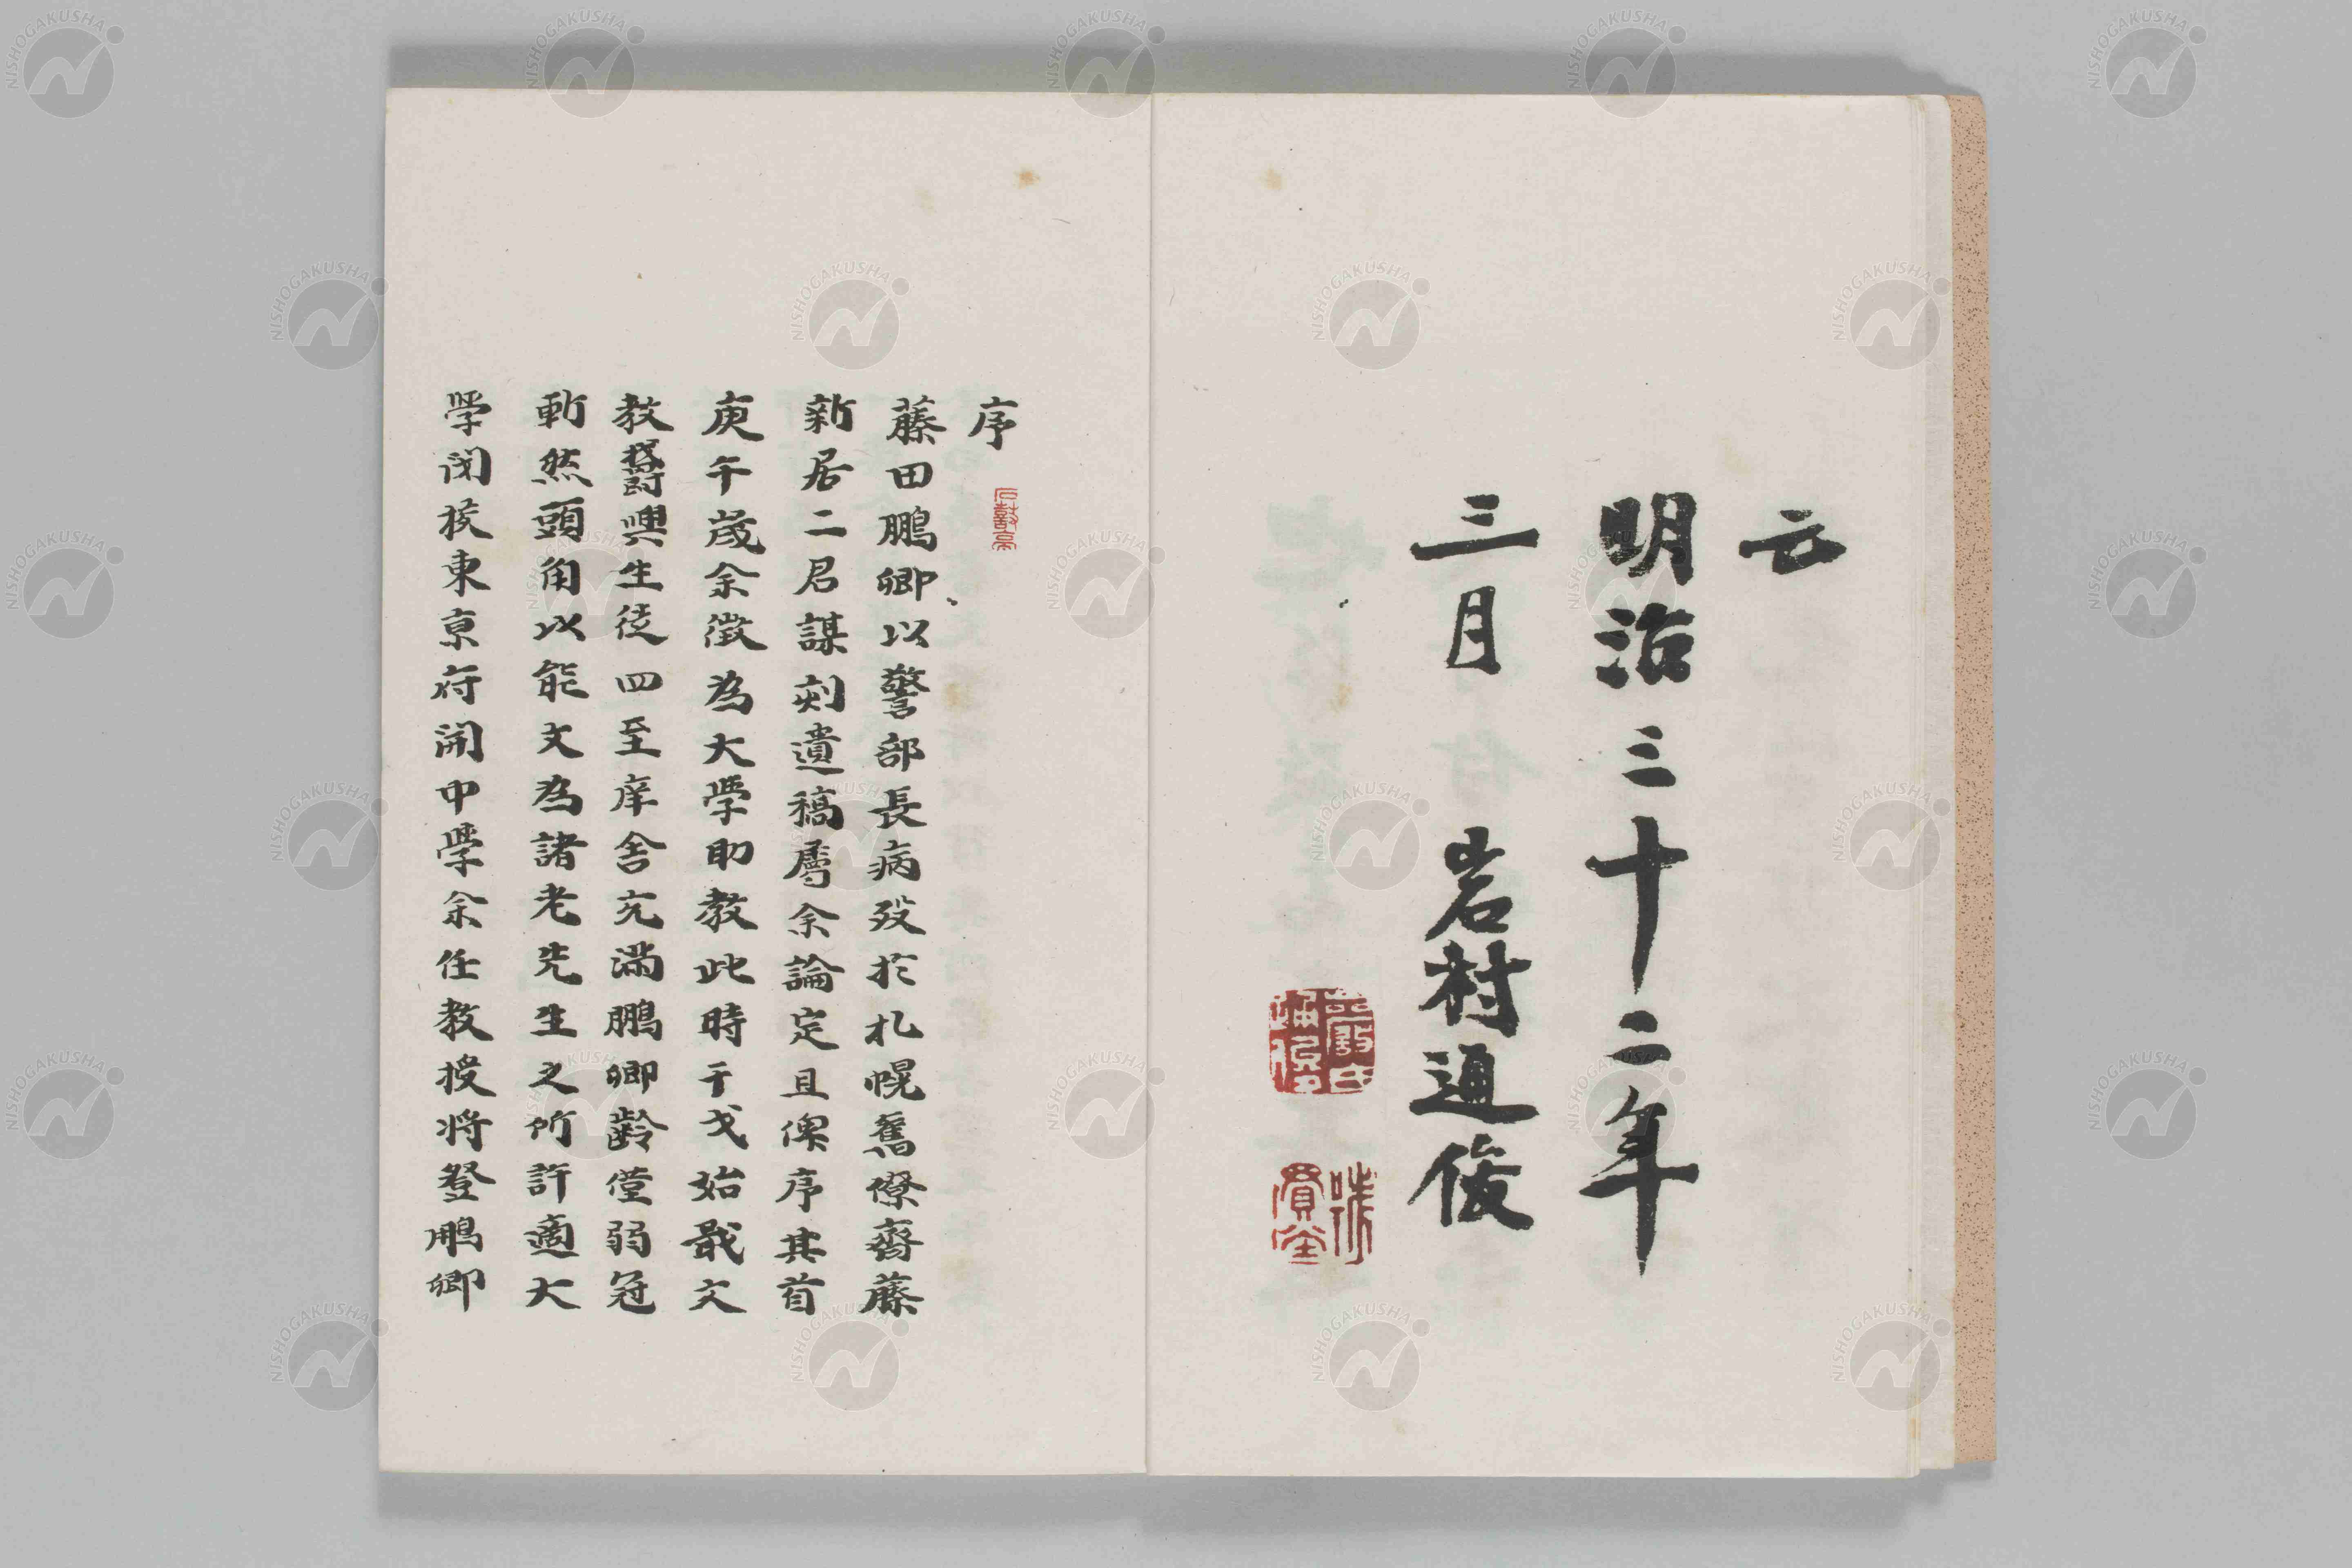 云
明治三十二年
三月 岩村通俊
序
石鼓亭
藤田鵬卿以警部長病歿於札幌舊僚齋藤
新居二君謀刻遺稿屬余論定且俾序其首
庚午歲余徵為大學助教此時干戈始戢文
教爵興生徒四至庠舍充滿鵬卿齡僅弱冠
斬然頭角以能文為諸老先生之所許適大
學閉校東京府開中學余任教授將登鵬卿
NISHOGAKUSHA